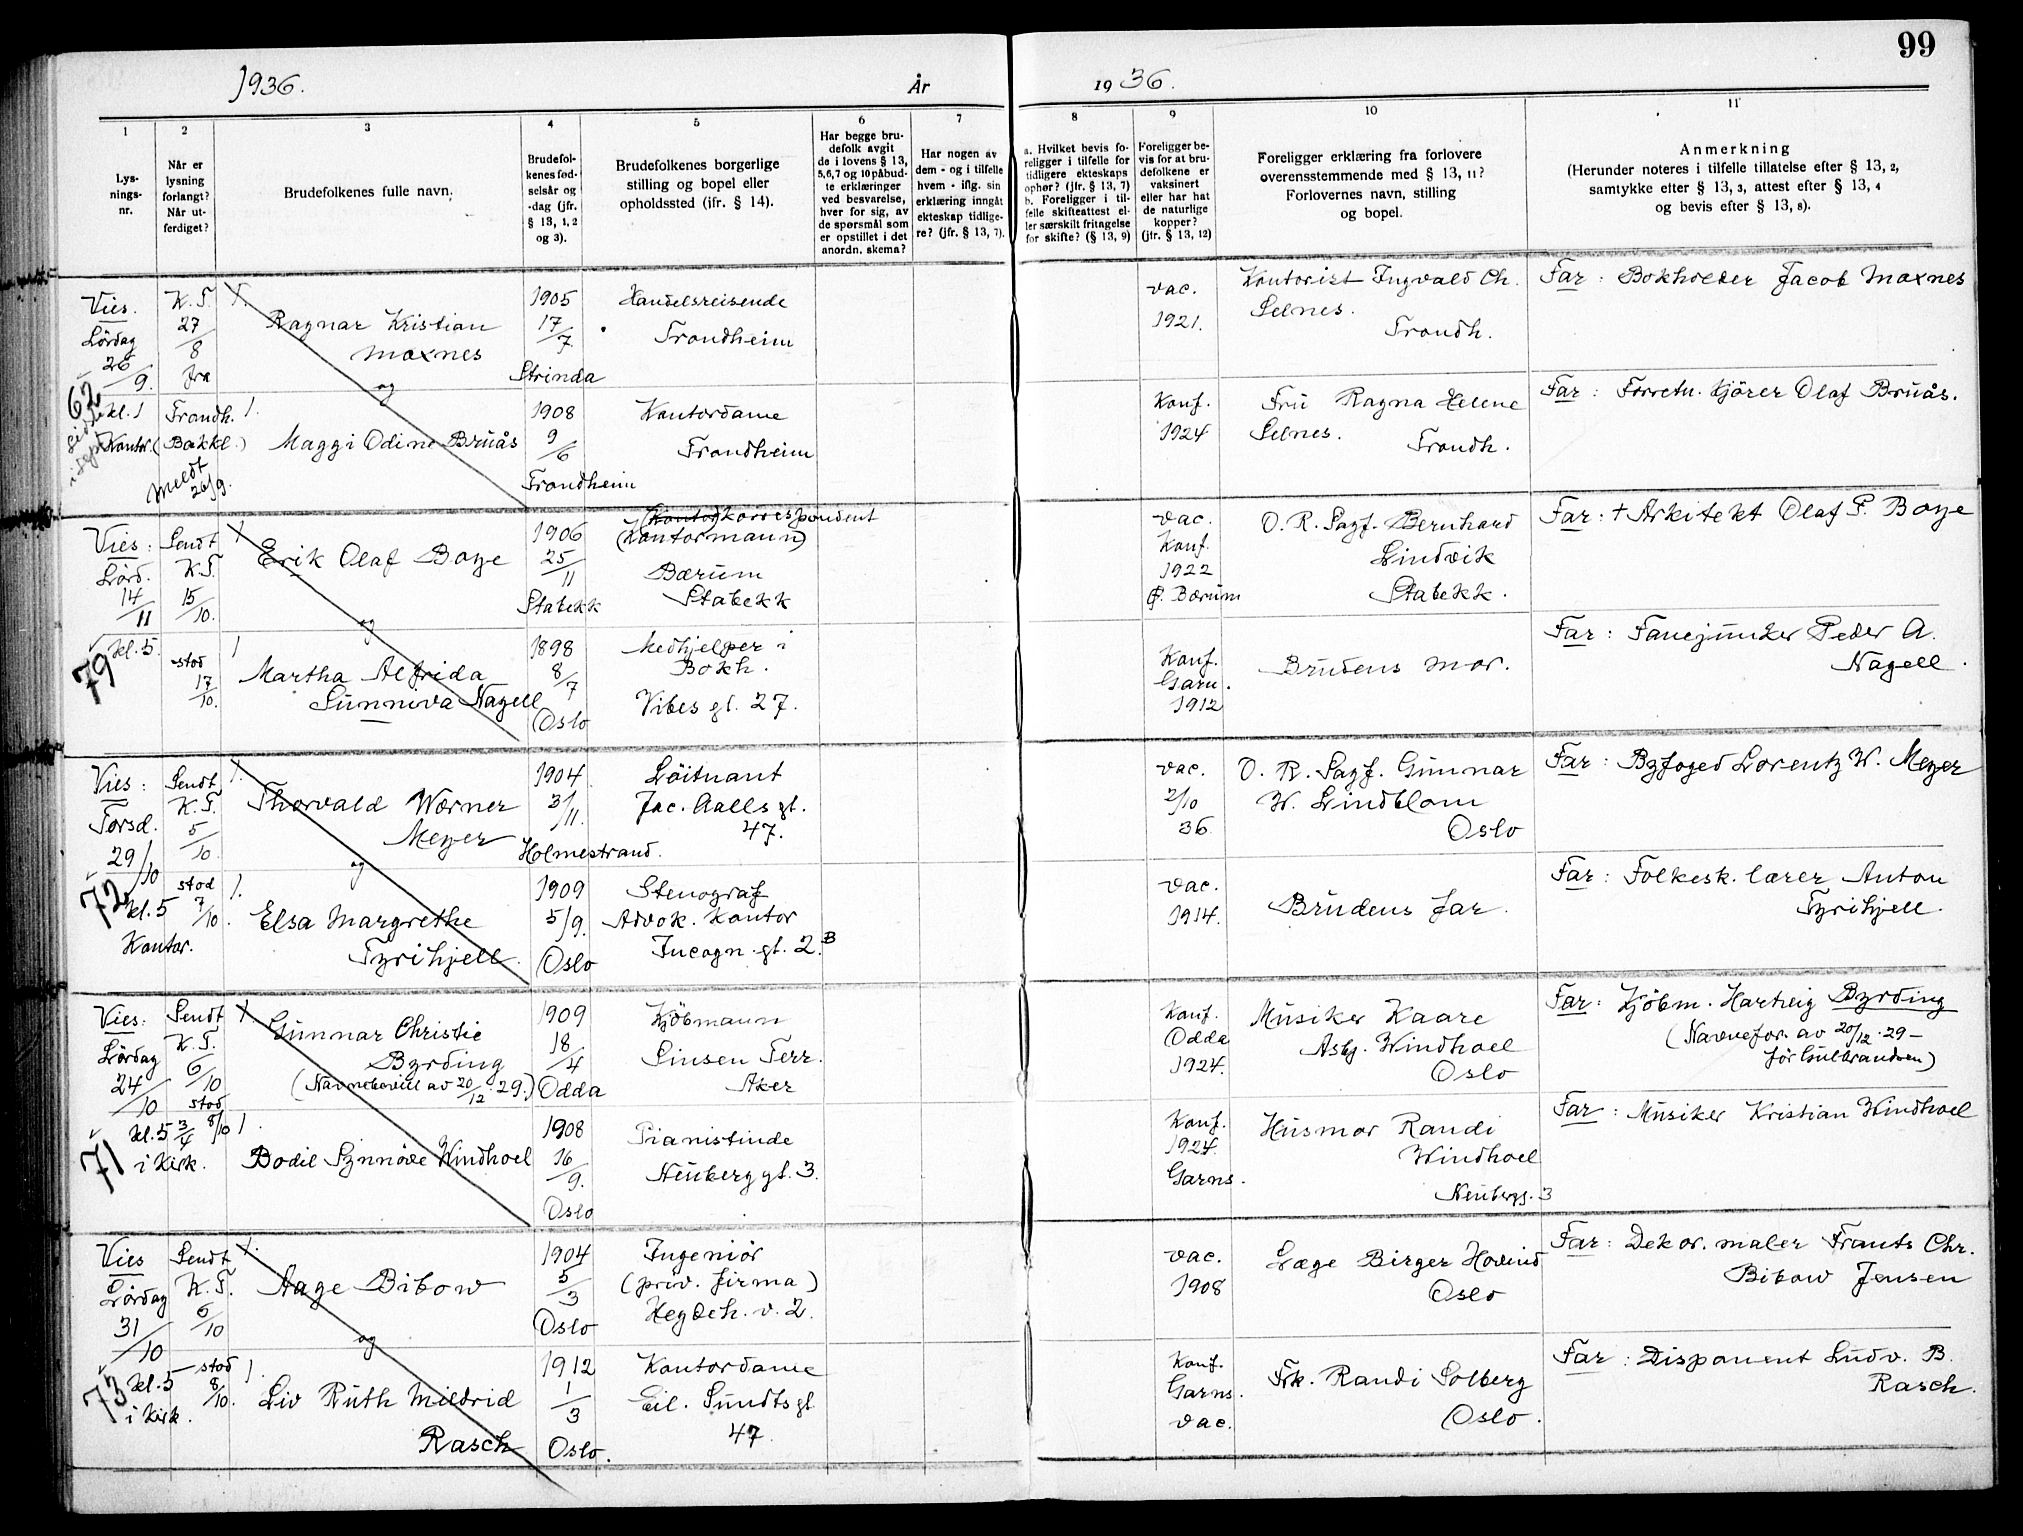 99
1936.
År
19 36.
1
2
3
4
5
6
7
8
9
10
11
Lys-
nings-
nr.
Når er
lysning
forlangt?
Når ut-
ferdiget?
Brudefolkenes fulle navn.
Brudefol-
kenes fød-
selsår og
-dag (jfr.
§ 13, 1, 2
og 3).
Brudefolkenes borgerlige
stilling og bopel eller
opholdssted (jfr. § 14).
Har begge bru-
defolk avgit
de i lovens § 13,
5,6,7 og 10 påbud-
te erklæringer
ved besvarelse,
hver for sig, av
de spørsmål som
er opstillet i det
anordn. skema?
Har nogen av
dem - og i tilfelle
hvem - iflg. sin
erklæring inngåt
ekteskap tidlige-
re? (jfr. § 13, 7).
a. Hvilket bevis fo-
religger i tilfelle for
tidligere ekteskaps
ophør? (jfr. § 13, 7)
b. Foreligger i til-
felle skifteattest el-
ler særskilt fritagelse
for skifte? (§ 13, 9)
Foreligger be-
vis for at bru-
defolkene er
vaksinert
eller har hat
de naturlige
kopper?
(jfr. § 13, 12)
Foreligger erklæring fra forlovere
overensstemmende med § 13, 11?
Forlovernes navn, stilling
og bopel.
Anmerkning
(Herunder noteres i tilfelle tillatelse efter § 13, 2,
samtykke efter § 13, 3, attest efter § 13, 4
og bevis efter § 13, 8).
Vies.
Lördag
26/9.
62
kl. 1
Kontor.
K. T.
27/8
fra
Trondh.
(Bakkl.)
meldt
26/9.
1.
Ragnar Kristian
Moxnes
og
1.
Maggi Odine Bruås
1905
17/7.
Strinda
1908
9/6
Trondheim
Handelsreisende
Trondheim
Kontordame
Trondheim
vac.
1921.
Konf.
1924
Kontorist Ingvald Ch.
Selnes.
Trondh.
Fru Ragna Helene
Selnes.
Trondh.
Far: Bokholder Jacob Moxnes
Far: Forretn. kjörer Olaf Bruås.
Vies:
Lörd.
14/11
kl. 5.
79
Sendt
K. T.
15/10.
stod
17/10.
1
Erik Olaf Boye
og
1
Martha Alfrida
Sunniva Nagell
1906
25/11
Stabekk
1898
8/7
Oslo
(Kontor) korrespondent
(Kontormann)
Bærum
Stabekk
Medhjelper i
Bokh.
Vibes gt. 27.
vac.
Konf.
1922
Ø. Bærum
Konf.
Garn.
1912
O. R. Sagf. Bernhard
Lindvik
Stabekk.
Brudens mor.
Far: + Arkitekt Olaf P. Boye
Far: Fanejunker Peder A.
Nagell.
Vies:
Torsd.
29/10
72
kl. 5
Kontor.
Sendt
K. T.
5/10
stod
7/10.
1.
Thorvald Wærner
Meyer
og
1.
Elsa Margrethe
Tyrihjell.
1904
3/11.
Holmestrand.
1909
5/9.
Oslo
Löitnant
Jac. Aalls gt.
47.
Stenograf
Advok. kontor
Incogn. gt. 2.B
vac.
2/10
36.
vac.
1914.
O. R. Sagf. Gunnar
W. Lindblom
Oslo
Brudens far.
Far: Byfoged Lorentz W. Meyer
Far: Folkesk. lærer Anton
Tyrihjell.
Vies:
Lördag
24/10
kl. 5 3/4
71
i Kirk.
Sendt
K. T.
6/10
stod
8/10
1.
Gunnar Christie
Byrding
(Navnebevill av 20/12. 29.)
1.
Bodil Synnöve Windhoel
1909
18/4
Odda
1908
16/9.
Oslo
Kjöbmann
Sinsen Terr.
Aker
Pianistinde
Neuberg gt. 3.
Konf.
Odda
1924.
Konf.
1924.
Garns.
Musiker Kaare
Asbj. Windhoel
Oslo
Husmor Randi
Windhoel
Neubergs. 3
Far: Kjöbm. Hartvig Byrding
(Navnefor. av 20/12. 29 -
för Gulbrandsen)
Far: Musiker Kristian Windhoel
Vies
Lördag
31/10
kl. 5
73
i Kirk.
Sendt
K. T.
6/10
stod
8/10.
1.
Aage Bibow
og
1.
Liv Ruth Mildrid
Rasch
1904
5/3
Oslo
1912
1/3
Oslo.
Ingeniör
(priv. firma)
Hegdeh. v. 2.
Kontordame
Eil. Sundts gt.
47.
vac.
1908
Konf.
Garns.
vac.
Læge Birger Hovind
Oslo
Frk. Randi Solberg
Oslo.
Far: Dekor. maler Frants Chr.
Bibow Jensen
Far: Disponent Ludv. B.
Rasch.